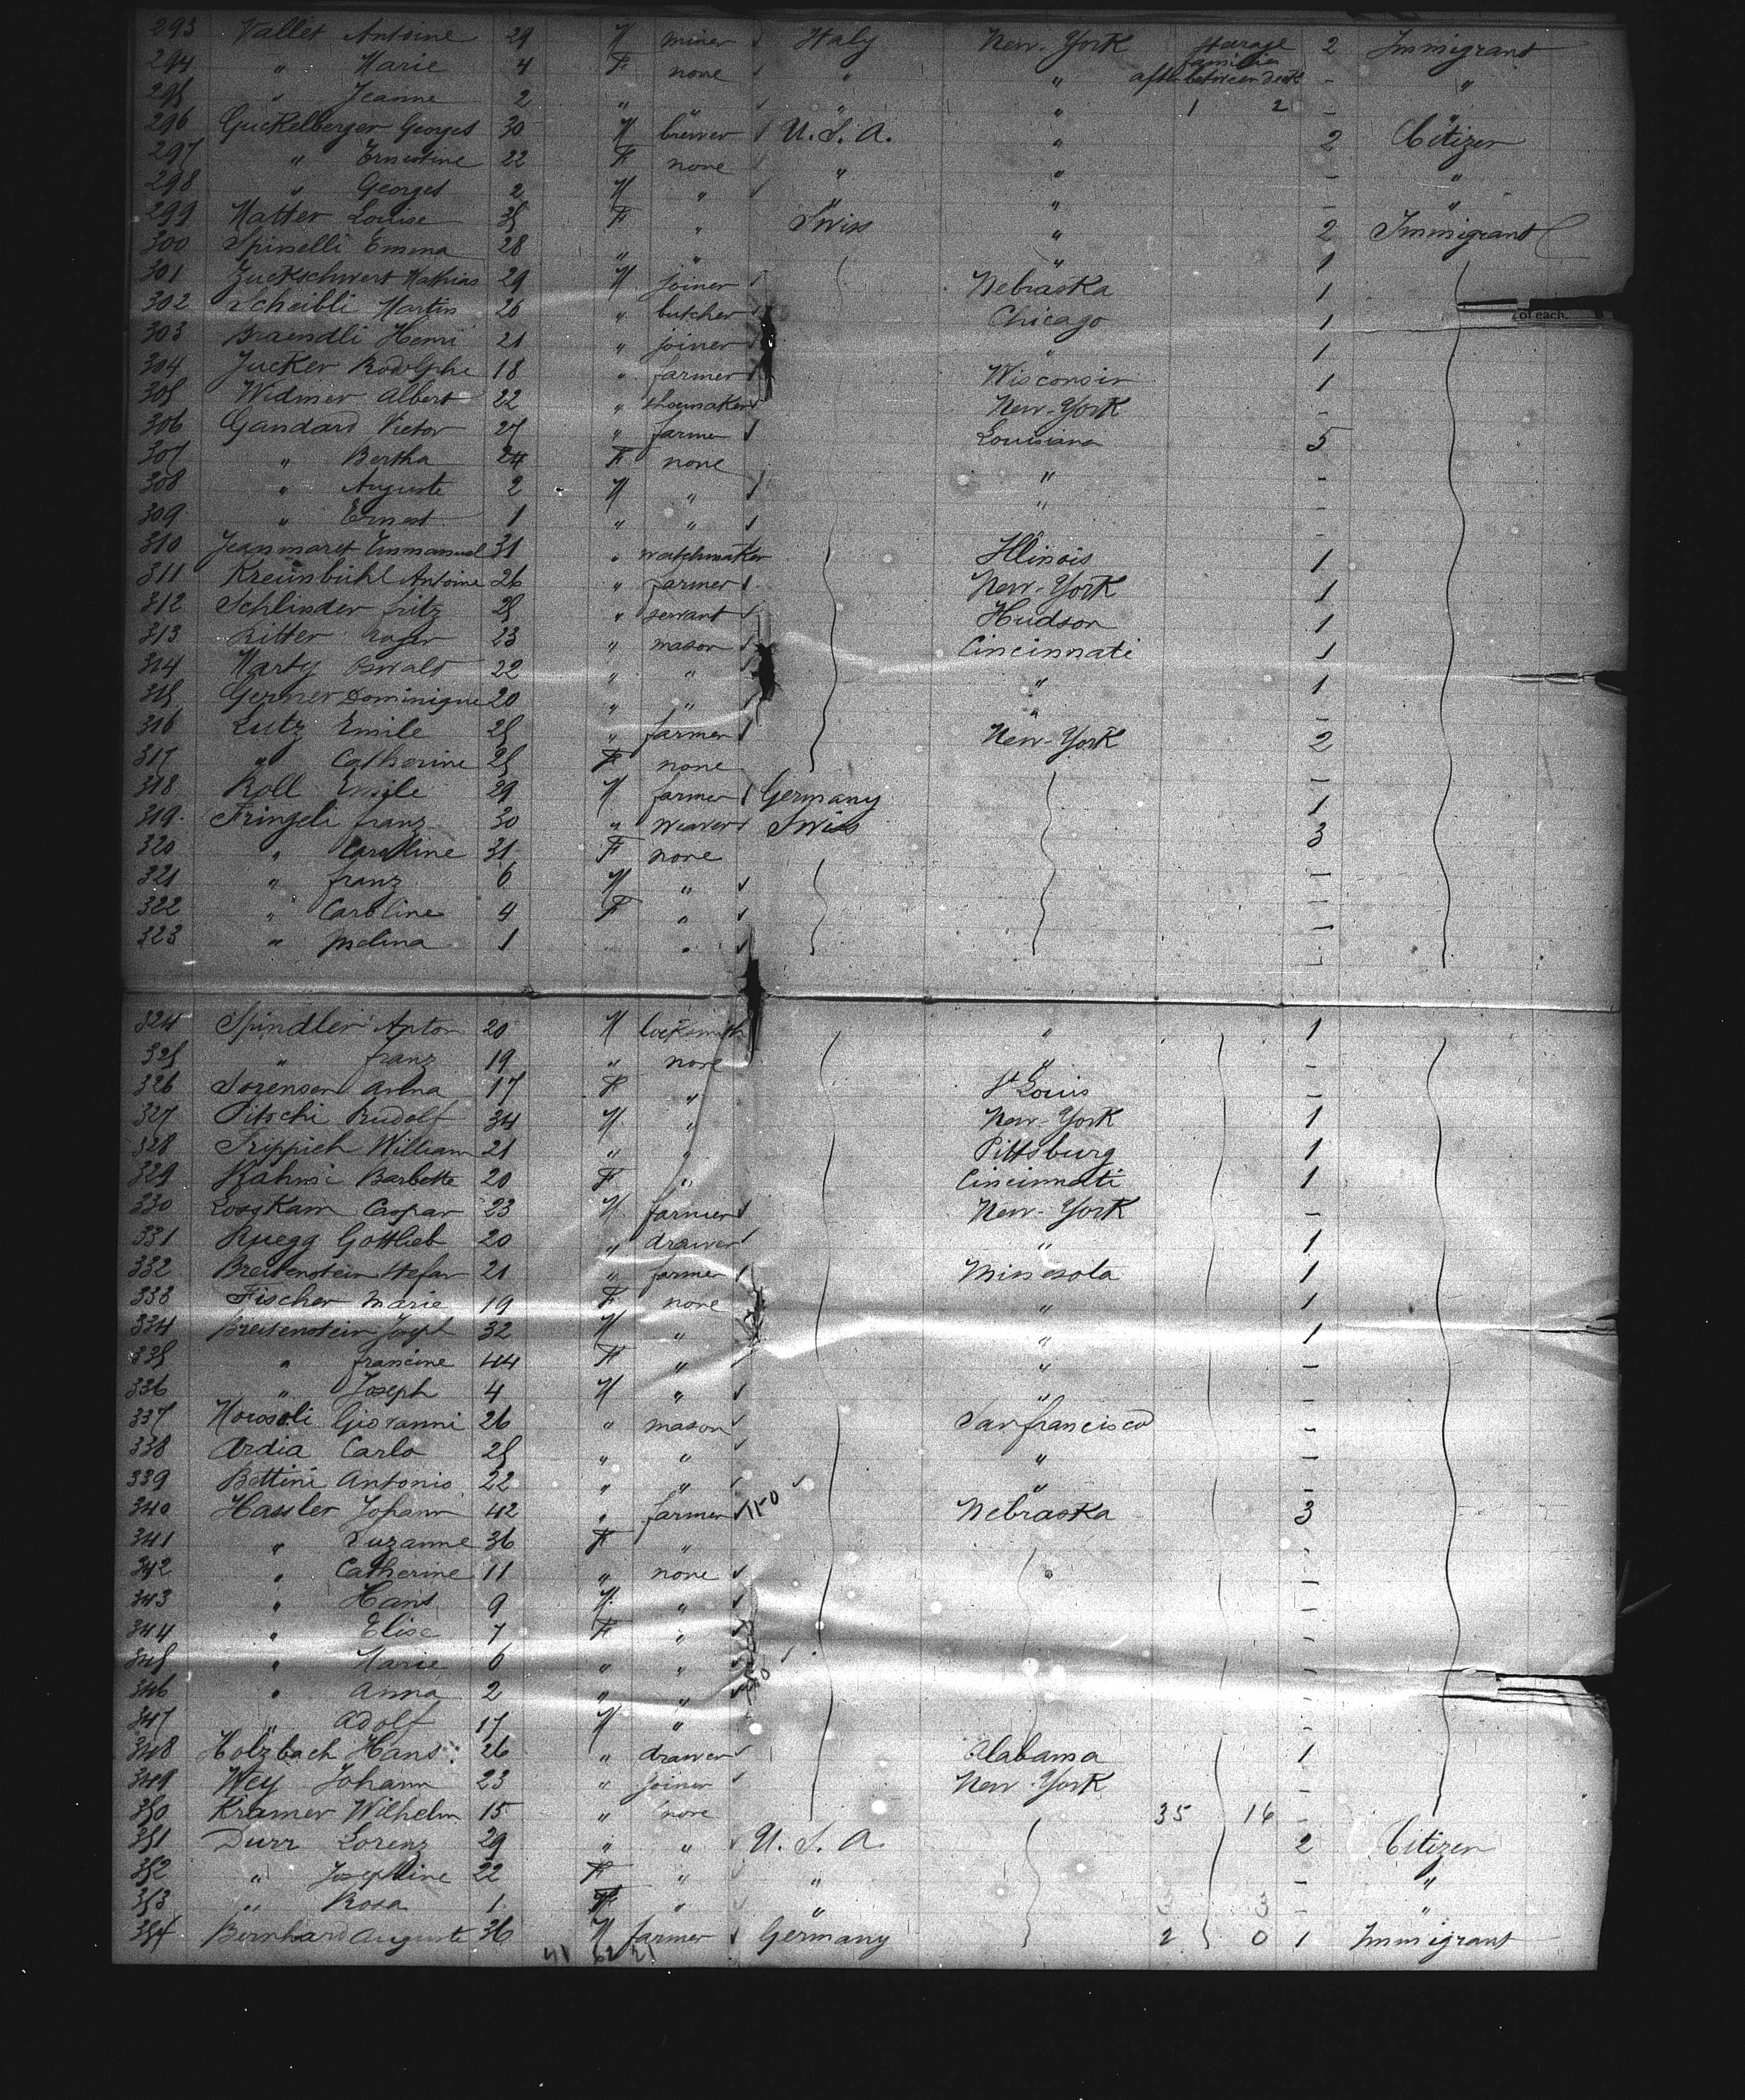 293 Vallet Antoine 29 M miner Italy New-York Steerage 2 Immigrant
294 " Marie 4 F none " " families after between deck - "
295 " Jeanne 2 " " " 1 2 - "
296 Guckelberger Georges 30 M brewer U.S.A. " 2 Citizen
297 " Ernestine 22 F none " " - "
298 " Georges 2 M " " " - "
299 Matter Louise 35 F " Swiss " 2 Immigrant
300 Spinelli Emma 28 " " " 1
301 Zuckschwert Mathias 29 M joiner Nebraska 1
302 Scheibli Martin 26 " butcher Chicago 1
303 Braendli Henri 21 " joiner " 1
304 Jucker Rodolphe 18 " farmer Wisconsin 1
305 Widmer Albert 22 " shoemaker New-York -
306 Gandard Victor 27 " farmer Louisiana 5
307 " Bertha 24 F none " -
308 " Auguste 2 M " " -
309 " Ernest 1 " " " -
310 Jeanmaret Emmanuel 31 " watchmaker Illinois 1
311 Kreünbühl Antoine 26 " farmer New-York 1
312 Schlinder fritz 25 " servant Hudson 1
313 Ritter 23 " mason Cincinnati 1
314 Marty Oswald 22 " " " 1
315 Germer Dominique 20 " " " -
316 Lutz Emile 25 " farmer New-York 2
317 " Catherine 25 F none -
318 Roll Emile 29 M farmer Germany 1
319 Fringeli franz 30 " weaver Swiss 3
320 " Caroline 31 F none -
321 " franz 6 M " -
322 " Caroline 4 F " -
323 " 1 " -
of each.
324 Spindler Anton 20 M locksmith " 1
325 " franz 19 " none " -
326 Sorensen 17 F " St Louis -
327 Pitschi Rudolf 34 M " New-York 1
328 Trippich William 21 " " Pittsburg 1
329 Rahmi Barbette 20 F " Cincinnati 1
330 Losgkam Caspar 23 M farmer New-York -
331 Ruegg Gottlieb 20 " drawer " 1
332 Breitenstein Stefan 21 " farmer Minnesota 1
333 Fischer Marie 19 F none " 1
334 Breitenstein Joseph 32 M " " 1
335 " francine 44 F " " -
336 " Joseph 4 M " " -
337 Giovanni 26 " mason San francisco -
338 Ardia Carlo 25 " " " -
339 Bettini Antonio 22 " " " -
340 Hassler Johann 42 " farmer 150 Nebraska 3
341 " Suzanne 36 F " -
342 " Catherine 11 " none " -
343 " Hans 9 M " -
344 " Elise 7 F " -
345 " Marie 6 " " -
346 " Anna 2 " " -
347 " Adolf 17 M " -
348 Holzbach Hans 26 " drawer Alabama 1
349 Wey Johann 23 " joiner New-York -
350 Kramer Wilhelm 15 " none 35 16 -
351 Durr Lorenz 29 " " U.S.A 2 Citizen
352 " Josephine 22 F " " - "
353 " Rosa 1 F " " 3 3 - "
354 Bernhard Auguste 36 M farmer Germany 2 0 1 Immigrant
41 62 21